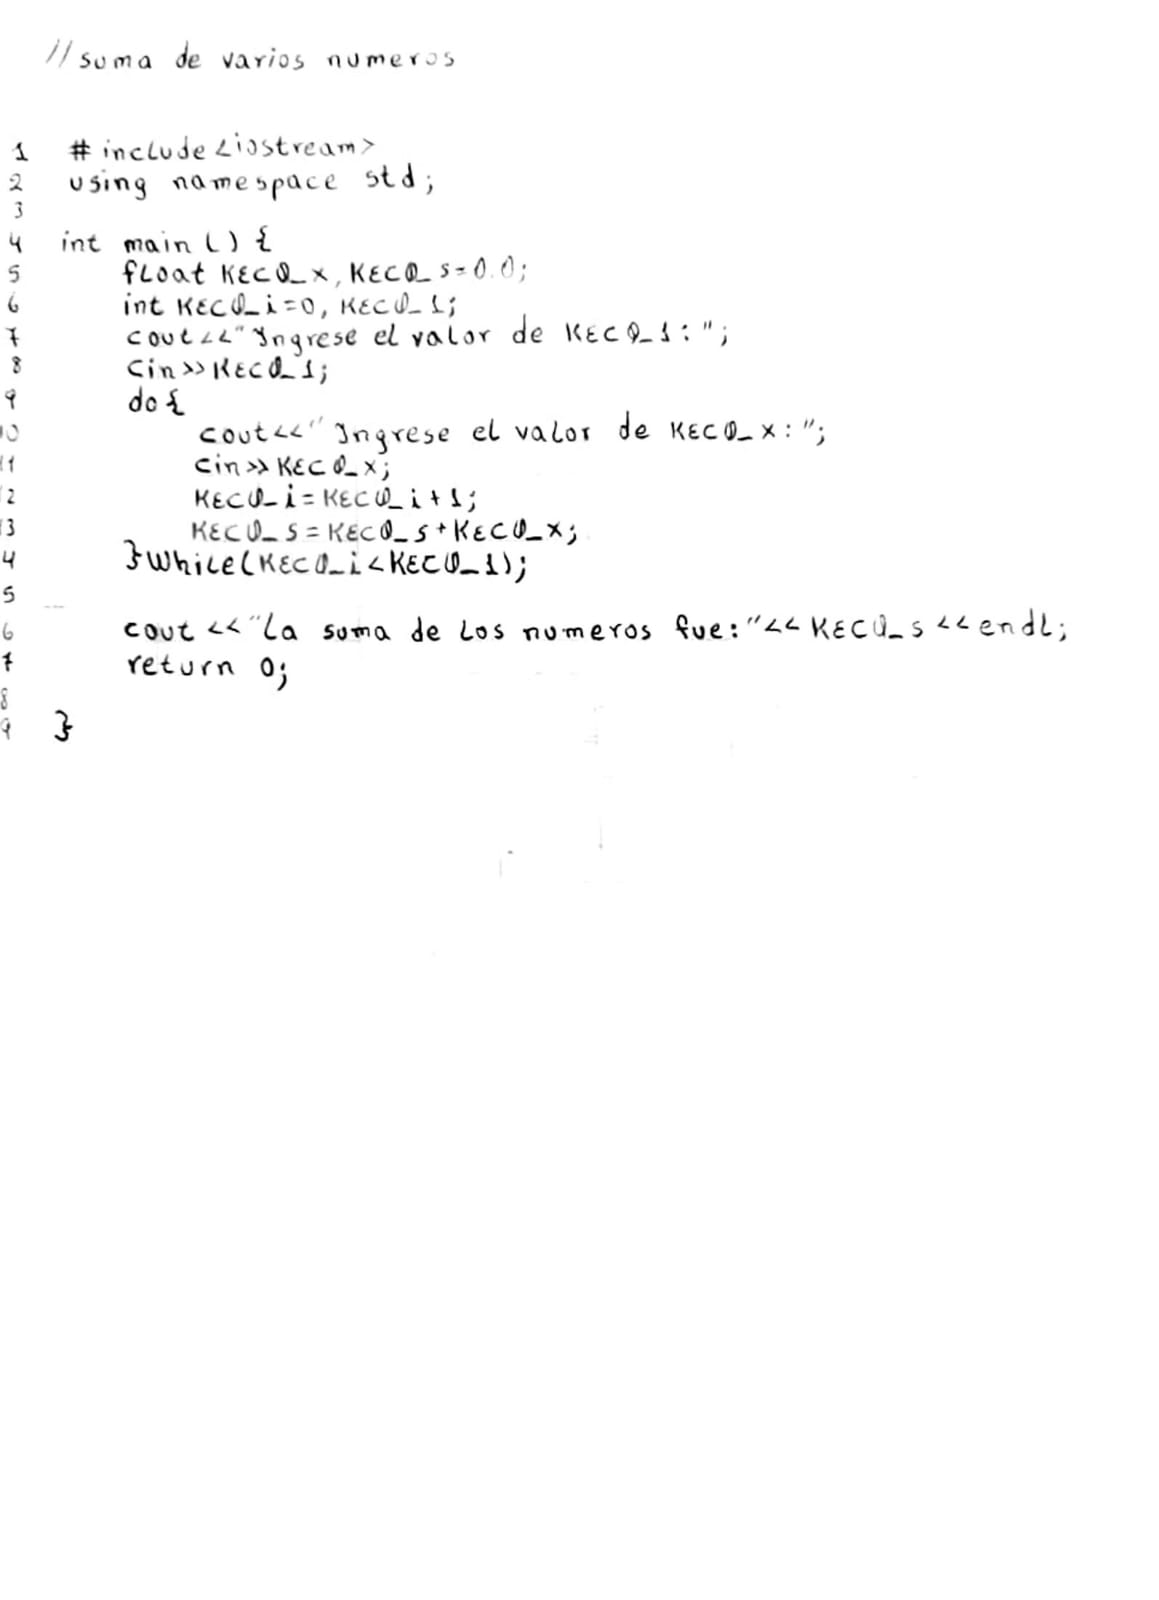 //suma de varios numeros
1 #include<iostream>
2 using namespace std;
3
4 int main(){
5 float KECO_x, KECO_s=0.0;
6 int KECO_i=0, KECO_1;
7 cout<<"Ingrese el valor de KECO_1:";
8 cin>>KECO_1;
9 do{
10 cout<<"Ingrese el valor de KECO_x:";
11 cin>>KECO_x;
2 KECO_i=KECO_i+1;
13 KECO_s=KECO_s+KECO_x;
4 }while(KECO_i<KECO_1);
5
6 cout<<"La suma de los numeros fue:"<<KECO_s<<endl;
7 return 0;
8
9 }